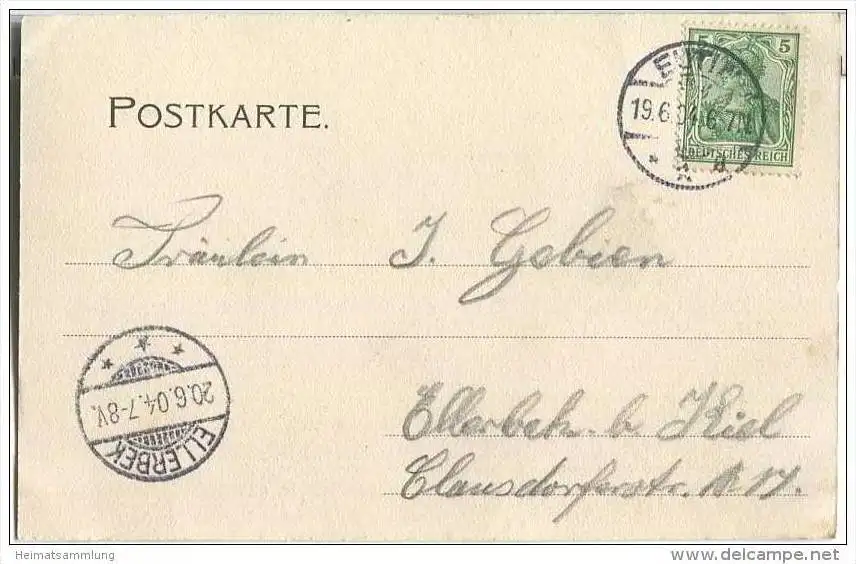 POSTKARTE.
5 5
DEUTSCHES REICH
EUTIN
19.6.04. 6-7N.
* a
Fräulein J. Gebien
20.6.04.7-8V.
ELLERBEK
Ellerbek b. Kiel
Clausdorferstr. No 14.
Heimatsammlung
delcampe.net